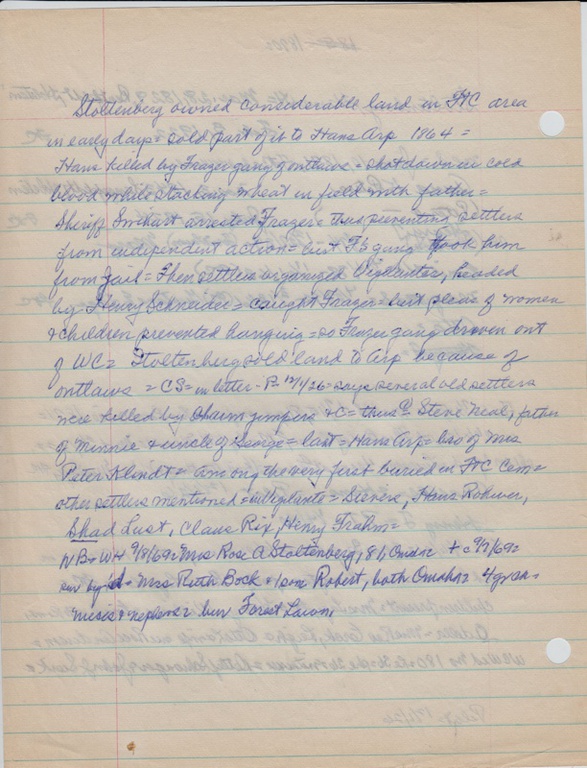 Stoltenberg owned considerable land in FtC area
in early days = sold part of it to Hans Arp 1864 =
Hans killed by Frazer gang of outlaws = shot down in cold
blood while stacking wheat in field with father =
Sheriff arrested Frazer = thus preventing settlers
from independent action = but F's gang took him
from jail = Then settlers organized Vigilantes, headed
by Henry Schneider = caught Frazer = but pleas of women
& children prevented hanging = so Frazer gang driven out
of WC = Stoltenberg sold land to Arp because of
outlaws = CS = in letter - P = 12/1/26 = says several old settlers
were killed by claim jumpers &C = thus Steve Neal, father
of Minnie & uncle of George = last = Hans Arp = bro of Mrs
Peter Klindt = among the very first buried in FtC Cem =
other settlers mentioned = vigilants = Sievers, Hans Rohwer,
Shad Lust, Claus Rix, Henry Frahm =
NB = WH 9/8/69 = Mrs Rose A Stoltenberg, 86 Omaha + c 9/7/69 =
sur by d = Mrs Ruth Bock & son Robert, both Omaha = 4 grch =
nieces & nephews = bur Forest Lawn,